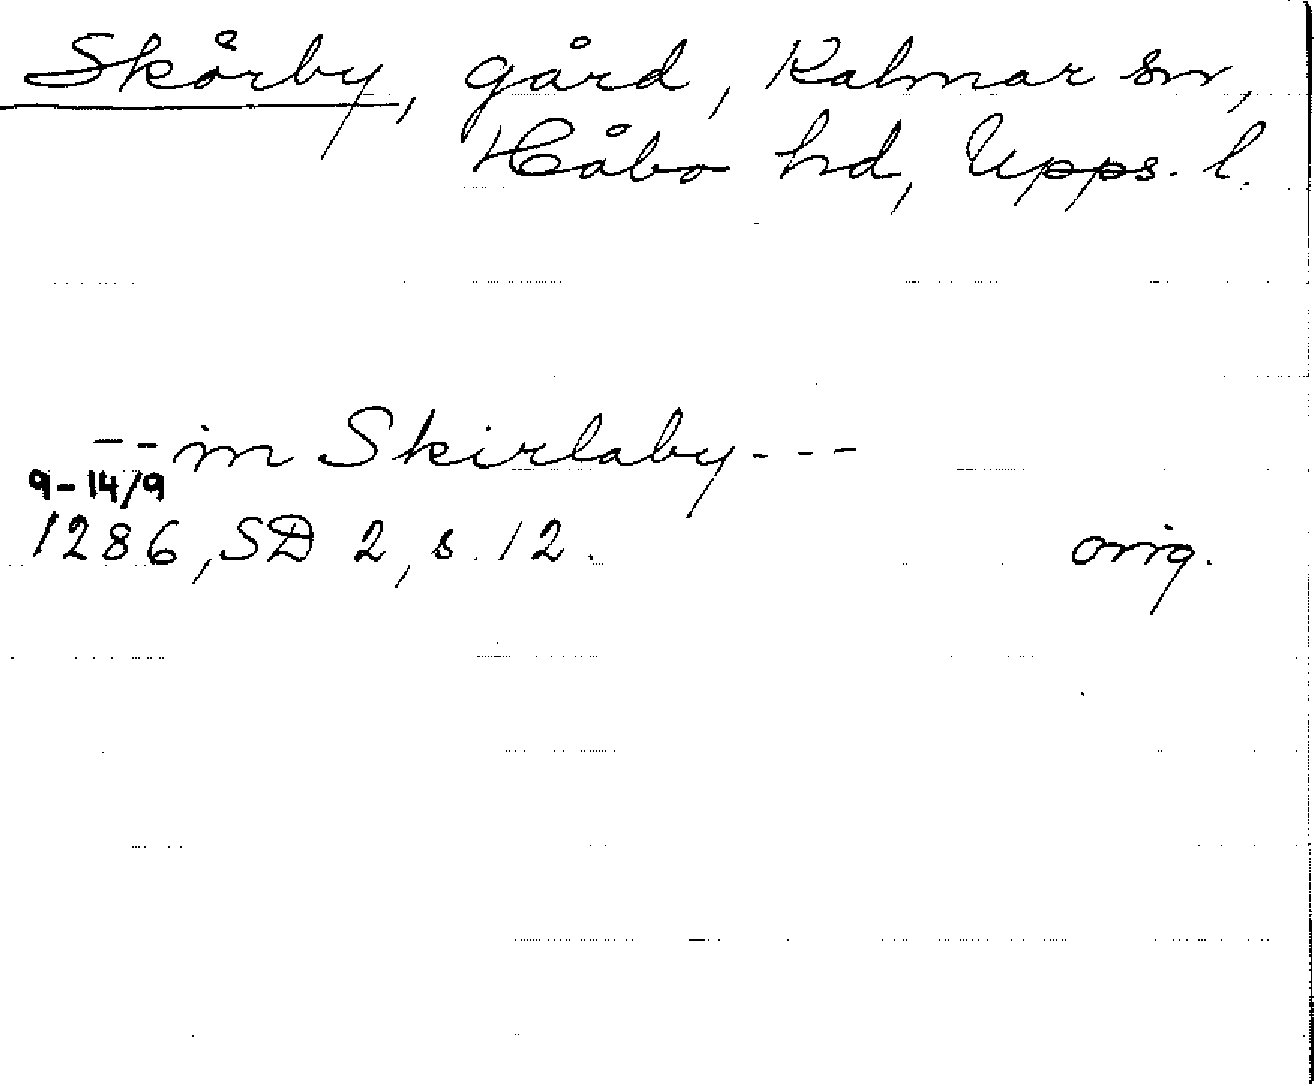 Skörby, gård, Kalmar sn,
Håbo hd, Upps. l.
-- in Skirlaby ---
9-14/9
1286, SD 2, s. 12. orig.